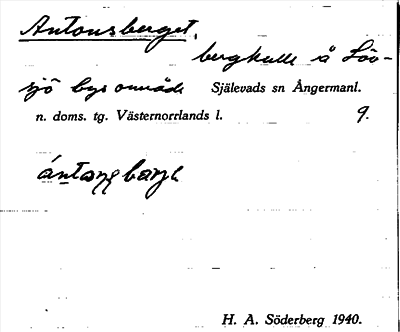 Antonsberget,
bergkulle å Löv-
sjö bys område Själevads sn Ångermanl.
n. doms. tg. Västernorrlands l. 9.
H. A. Söderberg 1940.